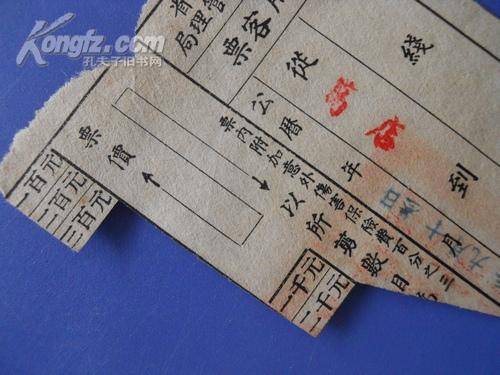 Kongfz.com
孔夫子旧书网
管理局
客票
綫
從
到
公曆
年
十月
票內附加意外傷害保險費百分之三
票價
以所剪數目
一百元
二百元
三百元
一千元
二千元